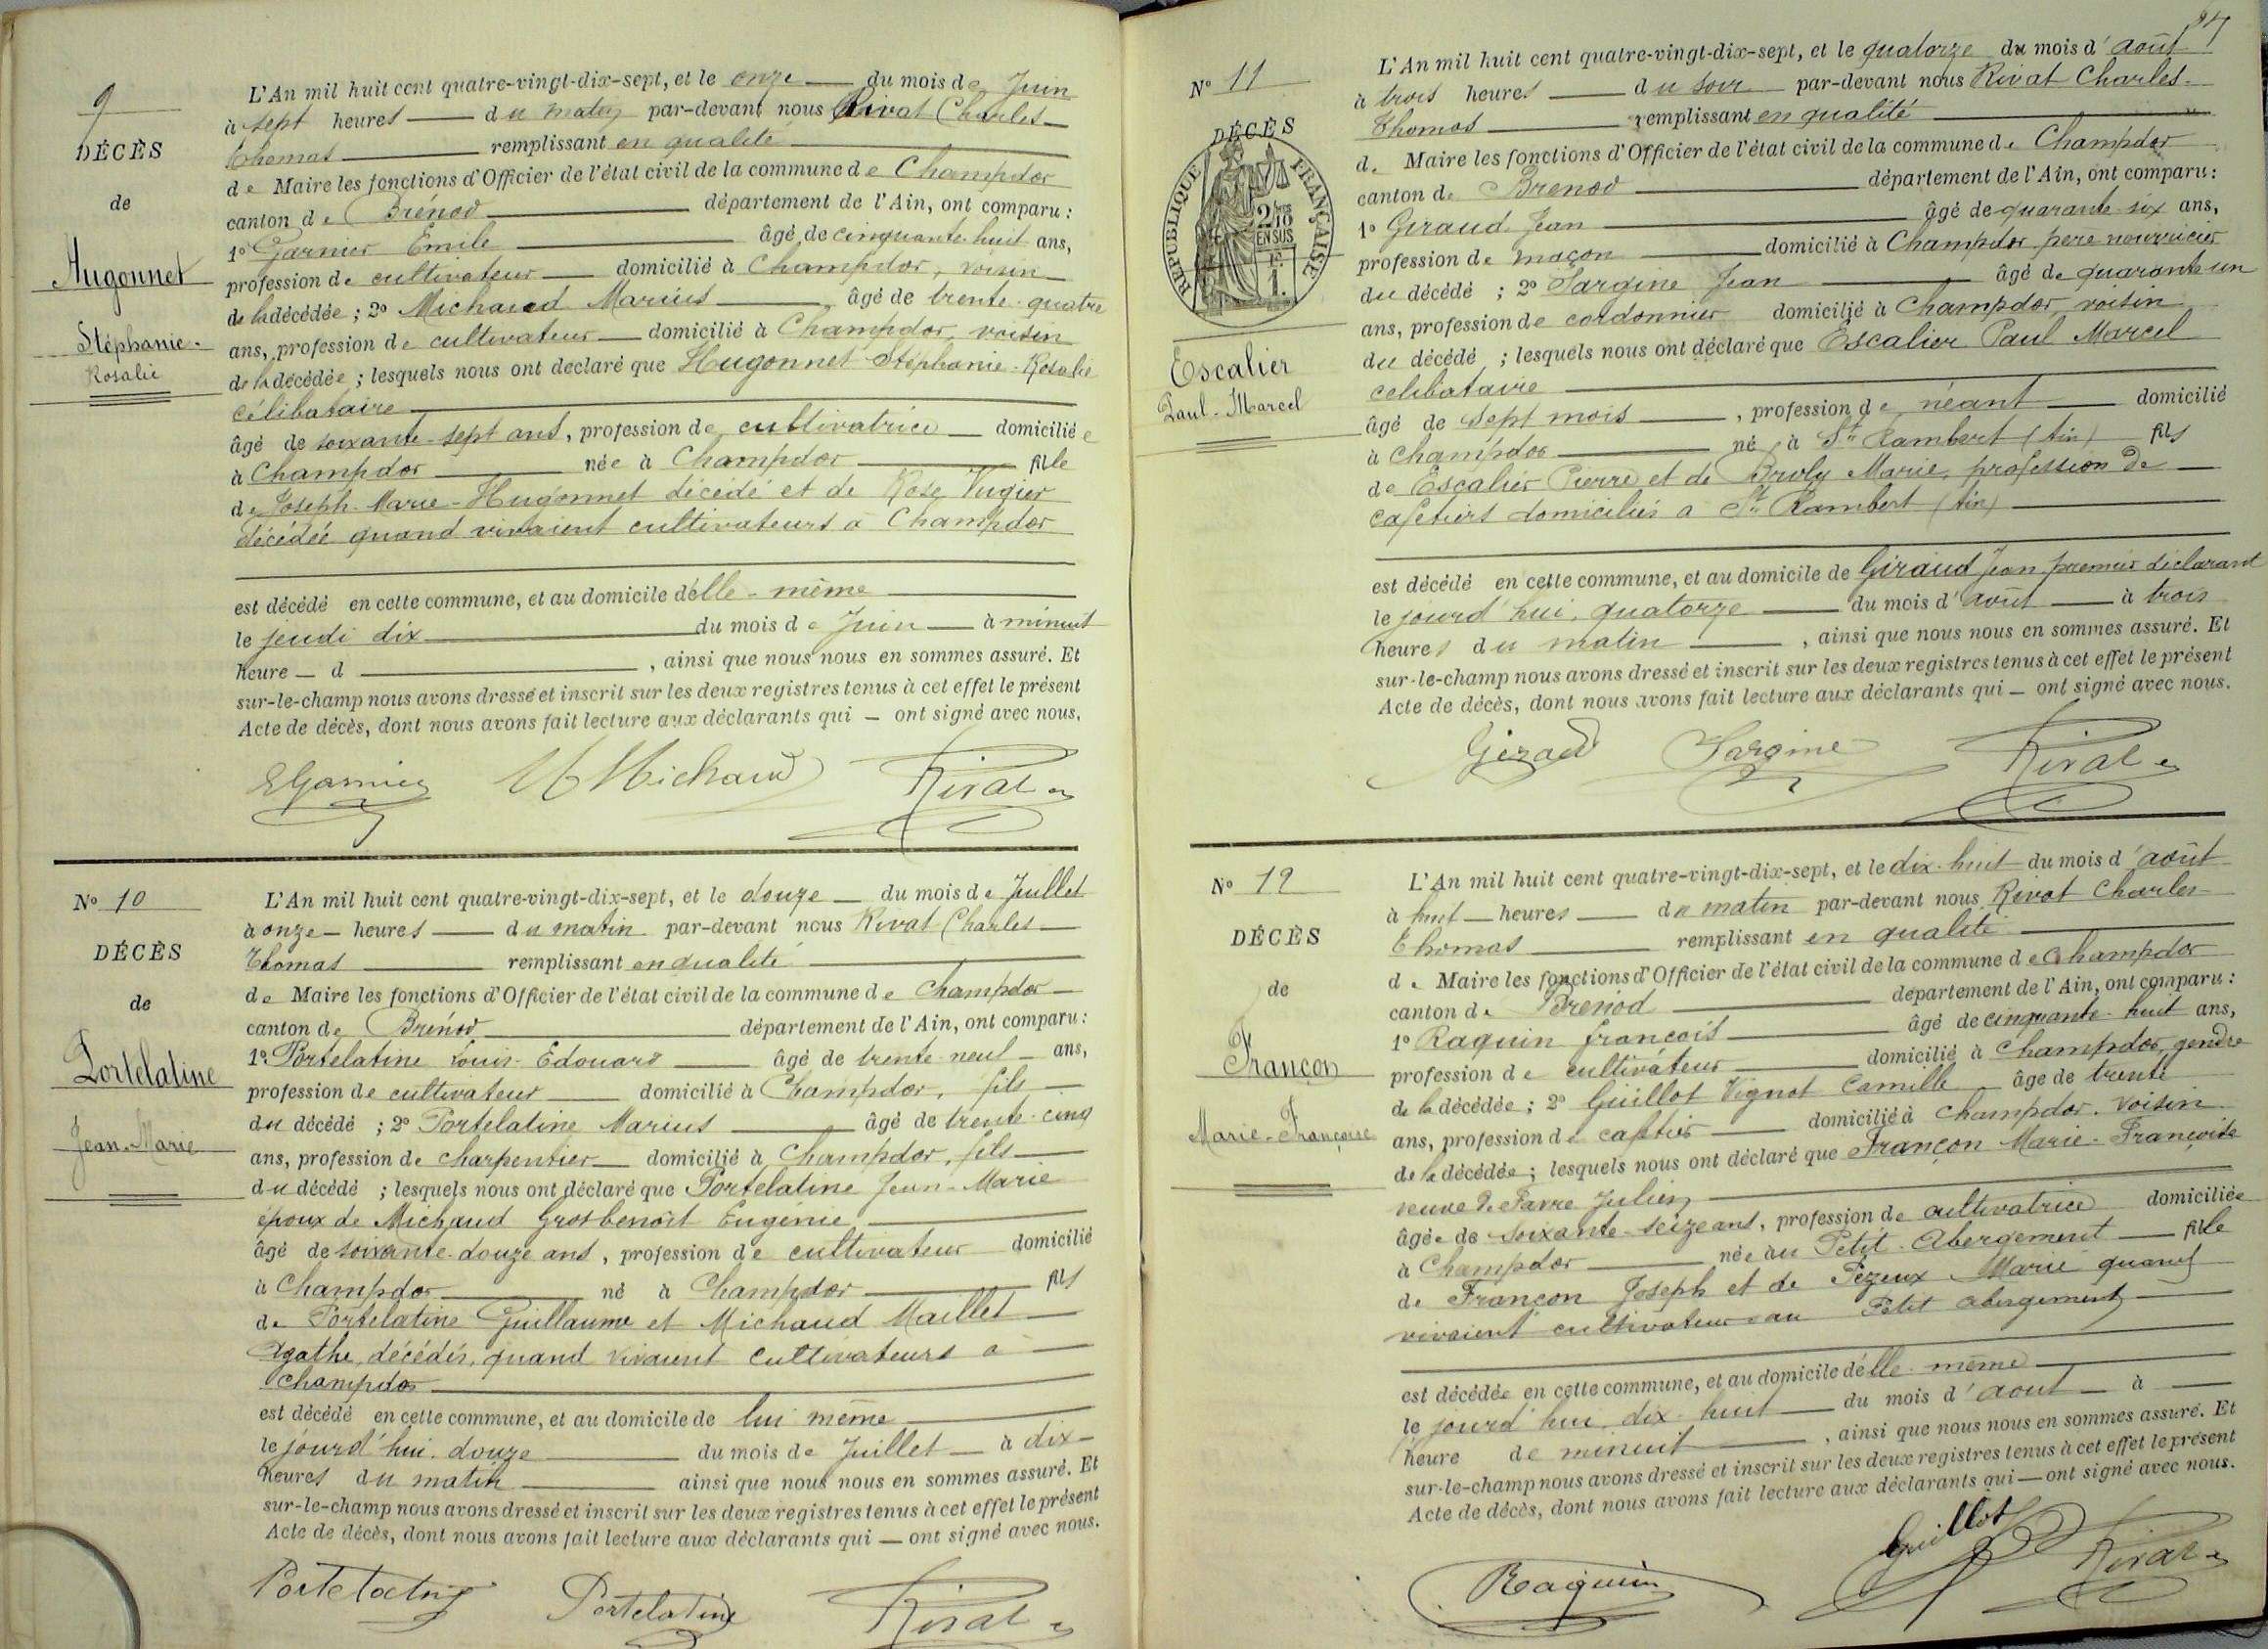 9
DÉCÈS
de
Hugonnet
Stéphanie-
Rosalie
L'An mil huit cent quatre-vingt-dix-sept, et le onze du mois de Juin
à sept heures du matin par-devant nous Rivat Charles
Thomas remplissant en qualité
de Maire les fonctions d'Officier de l'état civil de la commune de Champdor
canton de Brénod département de l'Ain, ont comparu :
1º Garnier Emile âgé de cinquante-huit ans,
profession de cultivateur domicilié à Champdor, voisin
de la décédée ; 2º Michaud Marius âgé de trente-quatre
ans, profession de cultivateur domicilié à Champdor, voisin
de la décédée ; lesquels nous ont déclaré que Hugonnet Stéphanie-Rosalie
célibataire
âgé de soixante-sept ans, profession de cultivatrice domiciliée
à Champdor née à Champdor fille
de Joseph-Marie-Hugonnet décédé et de Rose Vugier
décédée quand vivaient cultivateurs à Champdor
est décédé en cette commune, et au domicile d'elle-même
le jeudi dix du mois de Juin à minuit
heure d , ainsi que nous nous en sommes assuré. Et
sur-le-champ nous avons dressé et inscrit sur les deux registres tenus à cet effet le présent
Acte de décès, dont nous avons fait lecture aux déclarants qui — ont signé avec nous.
EGarnier M Michaud Rivat
Nº 10
DÉCÈS
de
Portelatine
Jean-Marie
L'An mil huit cent quatre-vingt-dix-sept, et le douze du mois de Juillet
à onze heures du matin par-devant nous Rivat Charles
Thomas remplissant en qualité
de Maire les fonctions d'Officier de l'état civil de la commune de Champdor
canton de Brénod département de l'Ain, ont comparu :
1º Portelatine Louis-Edouard âgé de trente-neuf ans,
profession de cultivateur domicilié à Champdor, fils
du décédé ; 2º Portelatine Marius âgé de trente-cinq
ans, profession de charpentier domicilié à Champdor, fils
du décédé ; lesquels nous ont déclaré que Portelatine Jean-Marie
époux de Michaud Grosbenoit Eugénie
âgé de soixante-douze ans, profession de cultivateur domicilié
à Champdor né à Champdor fils
de Portelatine Guillaume et Michaud Maillet
Agathe, décédés, quand vivaient cultivateurs à
Champdor
est décédé en cette commune, et au domicile de lui même
le jourd'hui douze du mois de Juillet à dix
heures du matin ainsi que nous nous en sommes assuré. Et
sur-le-champ nous avons dressé et inscrit sur les deux registres tenus à cet effet le présent
Acte de décès, dont nous avons fait lecture aux déclarants qui — ont signé avec nous.
Portelatine Portelatine Rivat
Nº 11
DÉCÈS
RÉPUBLIQUE FRANÇAISE
2/10
EN SUS
1.
Escalier
Paul-Marcel
L'An mil huit cent quatre-vingt-dix-sept, et le quatorze du mois d'août
à trois heures du soir par-devant nous Rivat Charles
Thomas remplissant en qualité
de Maire les fonctions d'Officier de l'état civil de la commune de Champdor
canton de Brénod département de l'Ain, ont comparu :
1º Giraud Jean âgé de quarante-six ans,
profession de maçon domicilié à Champdor père nourricier
du décédé ; 2º Sargine Jean âgé de quarante un
ans, profession de cordonnier domicilié à Champdor, voisin
du décédé ; lesquels nous ont déclaré que Escalier Paul Marcel
célibataire
âgé de sept mois , profession de néant domicilié
à Champdor né à St Rambert (Ain) fils
de Escalier Pierre et de Marie, profession de
cafetiers domiciliés à St Rambert (Ain)
est décédé en cette commune, et au domicile de Giraud Jean premier déclarant
le jourd'hui, quatorze du mois d'août à trois
heures du matin , ainsi que nous nous en sommes assuré. Et
sur-le-champ nous avons dressé et inscrit sur les deux registres tenus à cet effet le présent
Acte de décès, dont nous avons fait lecture aux déclarants qui — ont signé avec nous.
Giraud Sargine Rivat
Nº 12
DÉCÈS
de
Françon
Marie-Françoise
L'An mil huit cent quatre-vingt-dix-sept, et le dix-huit du mois d'août
à huit heures du matin par-devant nous Rivat Charles
Thomas remplissant en qualité
de Maire les fonctions d'Officier de l'état civil de la commune de Champdor
canton de Brénod département de l'Ain, ont comparu :
1º Raquin françois âgé de cinquante-huit ans,
profession de cultivateur domicilié à Champdor, gendre
de la décédée ; 2º Guillot Vignot Camille âgé de trente
ans, profession de caftier domicilié à Champdor, voisin
de la décédée ; lesquels nous ont déclaré que Françon Marie-Françoise
veuve de Favre Julien
âgée de soixante-seize ans, profession de cultivatrice domiciliée
à Champdor née au Petit-Abergement fille
de Françon Joseph et de Pezeux Marie quand
vivaient cultivateurs au Petit abergement
est décédée en cette commune, et au domicile d'elle-même
le jourd'hui dix-huit du mois d'aout à
heure de minuit , ainsi que nous nous en sommes assuré. Et
sur-le-champ nous avons dressé et inscrit sur les deux registres tenus à cet effet le présent
Acte de décès, dont nous avons fait lecture aux déclarants qui — ont signé avec nous.
Raquin Guillot Rivat